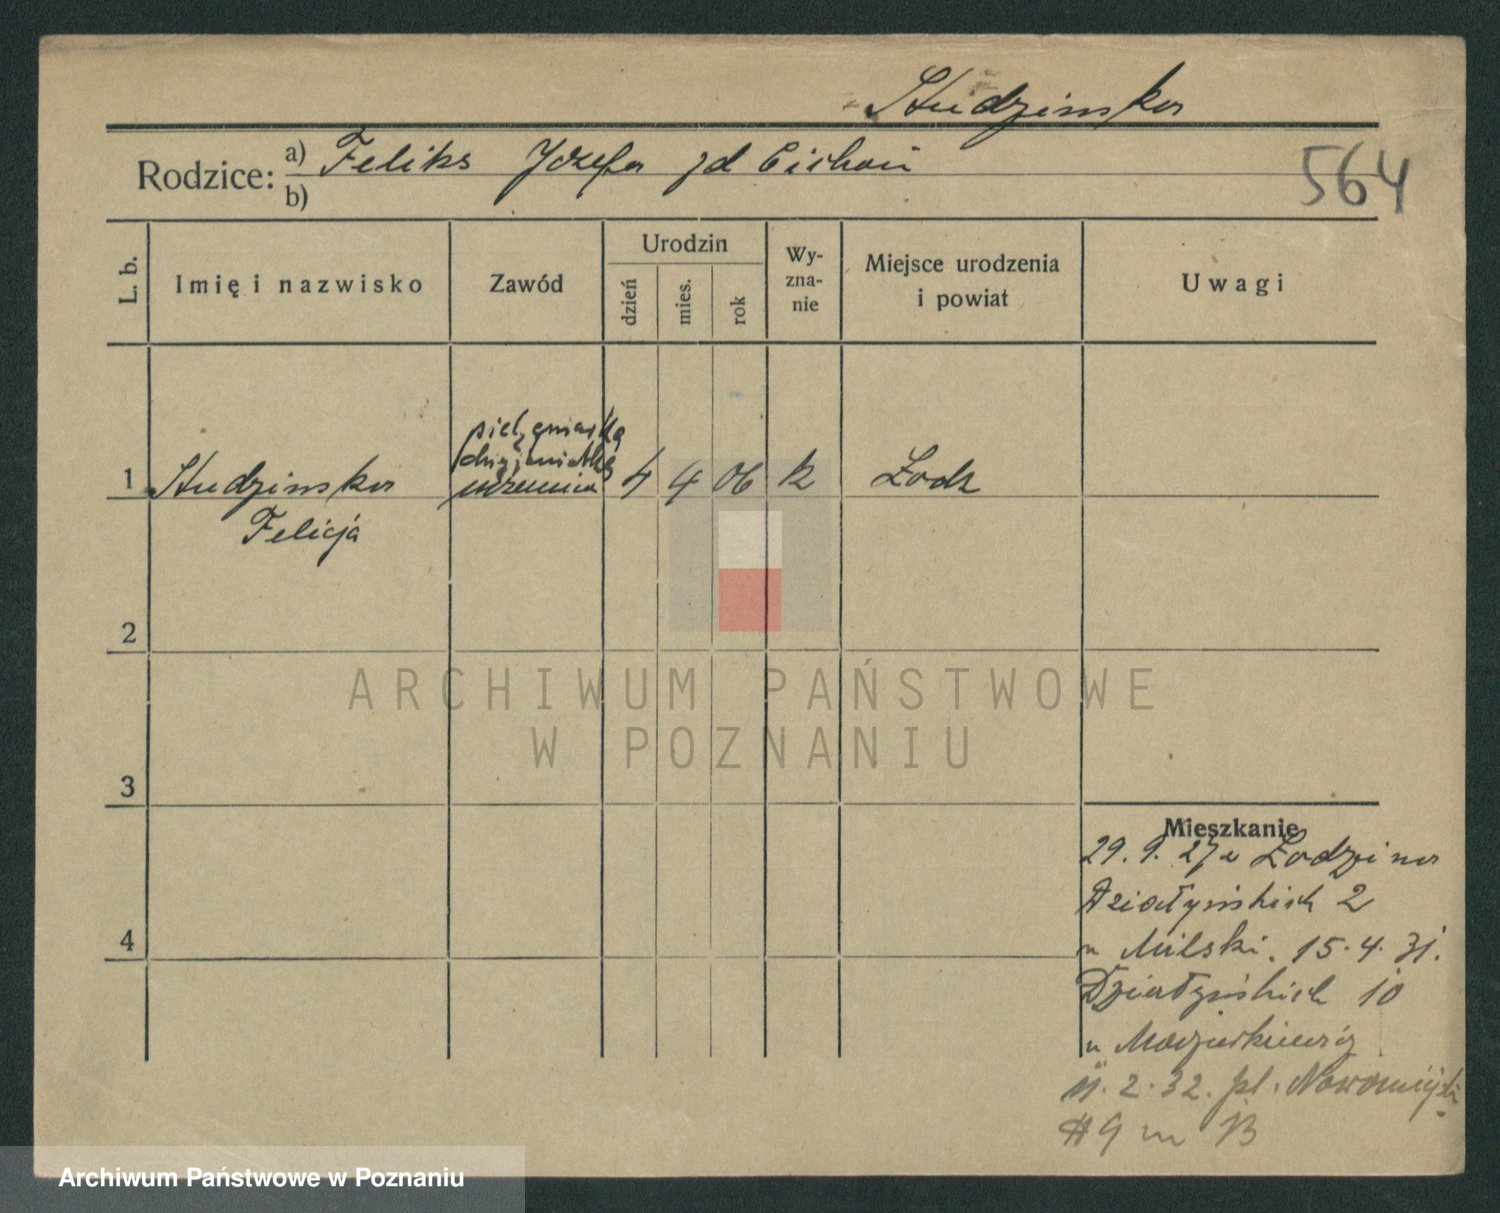 Studzinska
Rodzice: a) Feliks Jozefa zd Cichoń
b)
564
L. b.
Imię i nazwisko
Zawód
Urodzin
dzień
mies.
rok
Wy-
zna-
nie
Miejsce urodzenia
i powiat
Uwagi
pielęgniarka
higjenistka
uczenica
1 Studzinska 4 4 06 k Łodz
Felicja
2
3
4
Mieszkanie
29. 9. 27 z Łodzi na
Działyńskich 2
u Milski. 15. 4. 31.
Działyńskich 10
u Mazurkiewicz
11. 2. 32. pl. Nowomiejski
9 m 13
ARCHIWUM PAŃSTWOWE
W POZNANIU
Archiwum Państwowe w Poznaniu